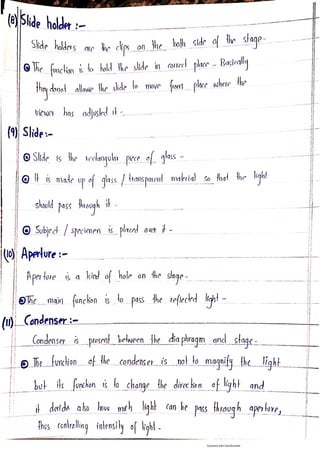 (8) Slide holder :-
Slide holders are the clips on the both side of the stage-
The function is to hold the slide in correct place - Basically
they donot allowe the slide to move from place where the
viewer has adjusted it -
(9) Slide:-
Slide is the rectangular piece of glass -
It is made up of glass / transparent material so that the light
should pass through it -
Subject / specimen is placed over it -
(10) Aperture :-
Aperture is a kind of hole on the stage-
The main function is to pass the reflected light -
(11) Condenser :-
Condenser is present between the diaphragm and stage-
The function of the condenser is not to magnify the light
but its function is to change the direction of light and
it decide also how much light can be pass through aperture,
thus controlling intensity of light -
Scanned with CamScanner